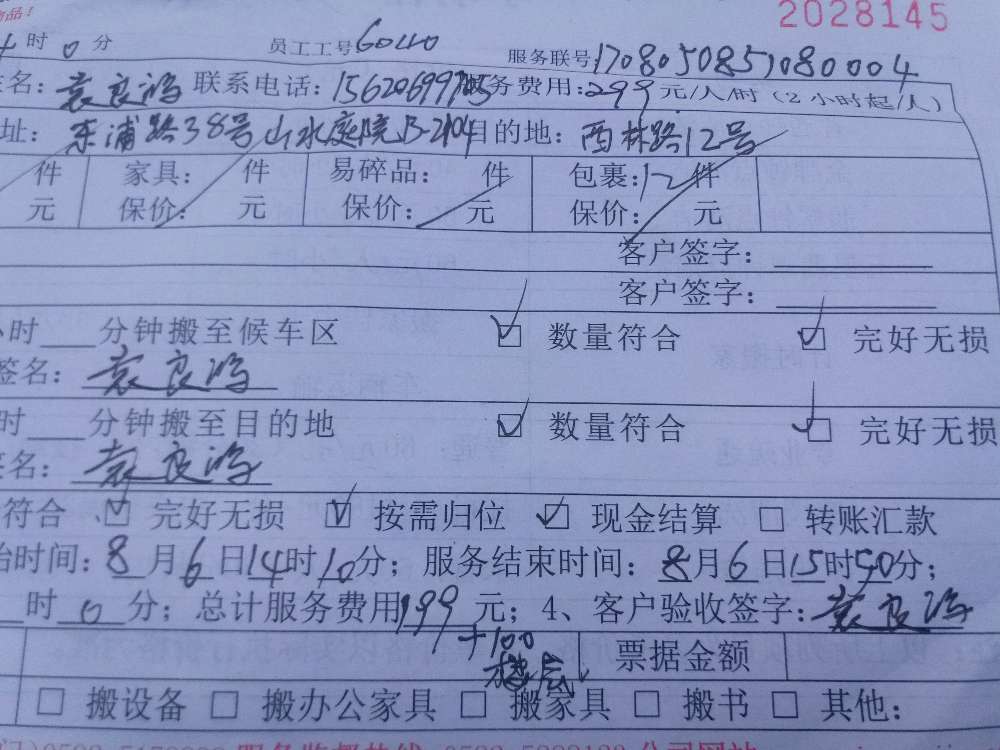 商品！
2028145
时0分 员工工号 服务联号:17080508570800004
名: 袁良鸿 联系电话: 务费用:299元/人/时（2小时起/人）
址: 东浦路38号山水庭院B-2104 目的地: 西林路12号
件 家具: 件 易碎品: 件 包裹:12件
元 保价: 元 保价: 元 保价: 元
客户签字:
客户签字:
时 分钟搬至候车区 ☑ 数量符合 ☑ 完好无损
签名:
时 分钟搬至目的地 ☑ 数量符合 ☑ 完好无损
签名:
符合 ☑ 完好无损 ☑ 按需归位 ☑ 现金结算 □ 转账汇款
始时间:8月6日14时10分；服务结束时间:8月6日15时50分；
时0分；总计服务费用199元；4、客户验收签字:
+100
票据金额
□ 搬设备 □ 搬办公家具 □ 搬家具 □ 搬书 □ 其他: